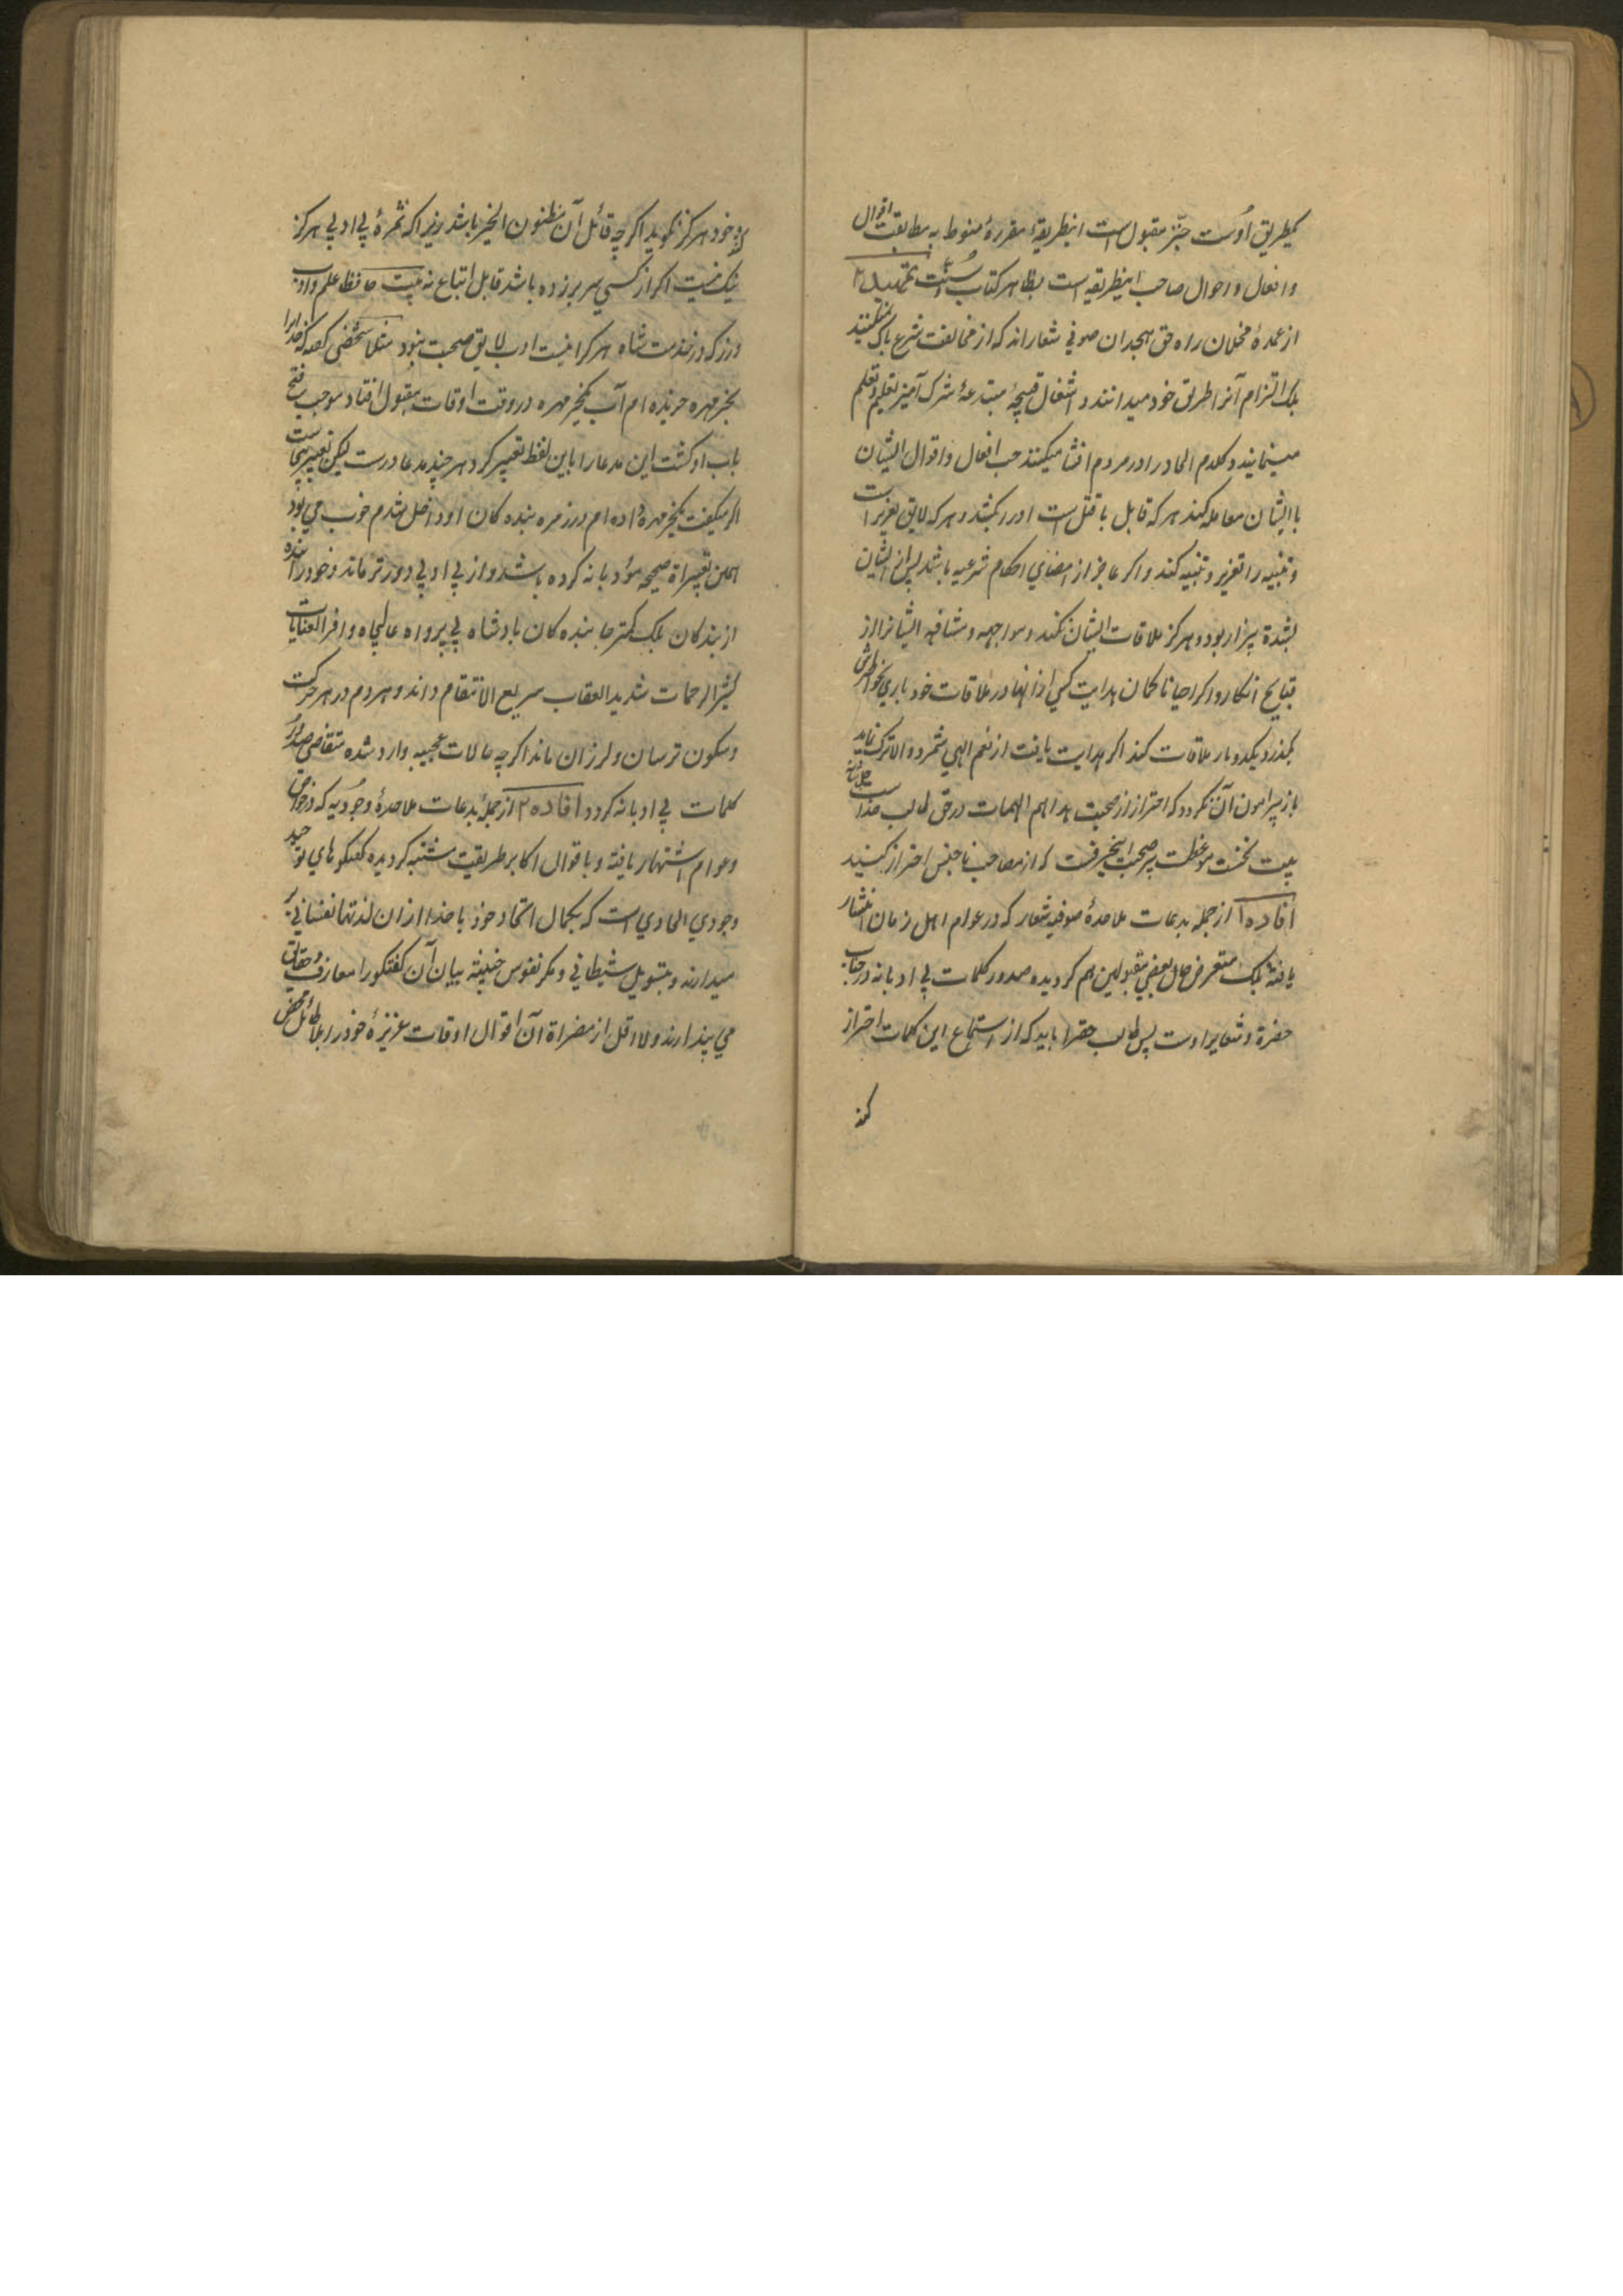 کمیطریق اوست جنّز مقبول است اینطریقهٔ مقررهٔ منوط به مطابقت اقوال
و افعال و احوال صاحب اینطریقه است بظاهر کتاب و سُنّت تمهید ۲
از عمدهٔ مخلان راه حق ملحدان صوفی شعاراند که از مخالفت شرع باک نمیکنند
بلک التزام آنرا طریق خود میدانند و اشغال قبیحهٔ مبتدعهٔ شرک آمیز تعلیم و تعلم
مینمایند و کلام الحاد را در مردم افشا میکنند حب افعال و اقوال ایشان
با ایشان معامله کند هر که قابل با قتل است او را بکشد و هر که لایق تعزیر است
و تنبیه را تعزیر و تنبیه کند و اگر عاجز از امضای احکام شرعیه باشد ایشان
بشدة بیزار بود و هرکز ملاقات ایشان نکند و مواجهه و مشافهه ایشانرا از
قبایح انکارد و اکر احیانا کمان هدایت کسی از انها در ملاقات خود باری بخواطرش
بکذرد یکدو بار ملاقات کند اکر هدایت یافت از نعم الهی شمرد و الا ترک نماید
باز پیرامون آن نکردد که احتراز از صحبت بد اهم المهمات در حق طالب خداست جل شانه
بیت نخست موعظت پیر صحبت این حرفست که از مصاحب ناجنس احتراز کنید
افاده ۱ از جمله بدعات ملاحدهٔ صوفیه شعار که در عوام اهل زمان انتشار
یافته بلک متعرض حال بعضی مقبولین هم کردیده صدور کلمات بی ادبانه در جناب
حضرة و شعایر اوست پس طالب حقرا باید که از استماع این کلمات احتراز
کند
خود هرکز نکوید اکرچه قائل آن مظنون الخیر باشد زیرا که ثمرهٔ بی ادبی هرکز
نیک نیست اکر از کسی سر برزده باشد قابل اتباع نه بیت حافظا علم و ادب
ورز که در خدمت شاه هر کرا نیست ادب لایق صحبت نبود مثلا شخصی کفته که خدا را
بخرمهره خریده ام آب بخرمهره در وقت اوقات مقبول افتاد موجب فتح
باب او کشت این مدعا را باین لفظ تعبیر کرد هر چند مدعا درست لیکن تعبیر بیجاست
اکر میکفت بخرمهرهٔ داده ام در زمره بنده کان او داخل شدم خوب می بود
تعبیراة صحیحه مؤدبانه کرده باشد و از بی ادبی دورتر ماند و خود را بنده
از بندکان بلک کمتر بنده کان بادشاه بی پرواه عالیجاه وافر العنایات
کثیر الرحمات شدید العقاب سریع الانتقام داند و هر دم در هر حرکت
و سکون ترسان و لرزان ماند اکرچه حالات عجیبه وارد شده متقاضی صدور
کلمات بی ادبانه کردد افاده ۲ از جملهٔ بدعات ملاحدهٔ وجُودیه که در خواص
و عوام اشتهار یافته و باقوال اکابر طریقت مشتبه کردیده کفتکوهای توحید
وجودی الحادی است که بکمال اتحاد خود با خدا ازان لذتها نفسانی بر
میدارند و بتسویل شیطانی و مکر نفوس خبیثه بیان آن کفتکو را معارف و حقایق
می پندارند و لا اقل از مضراة آن اقوال اوقات عزیزهٔ خود را بلا طائل محض